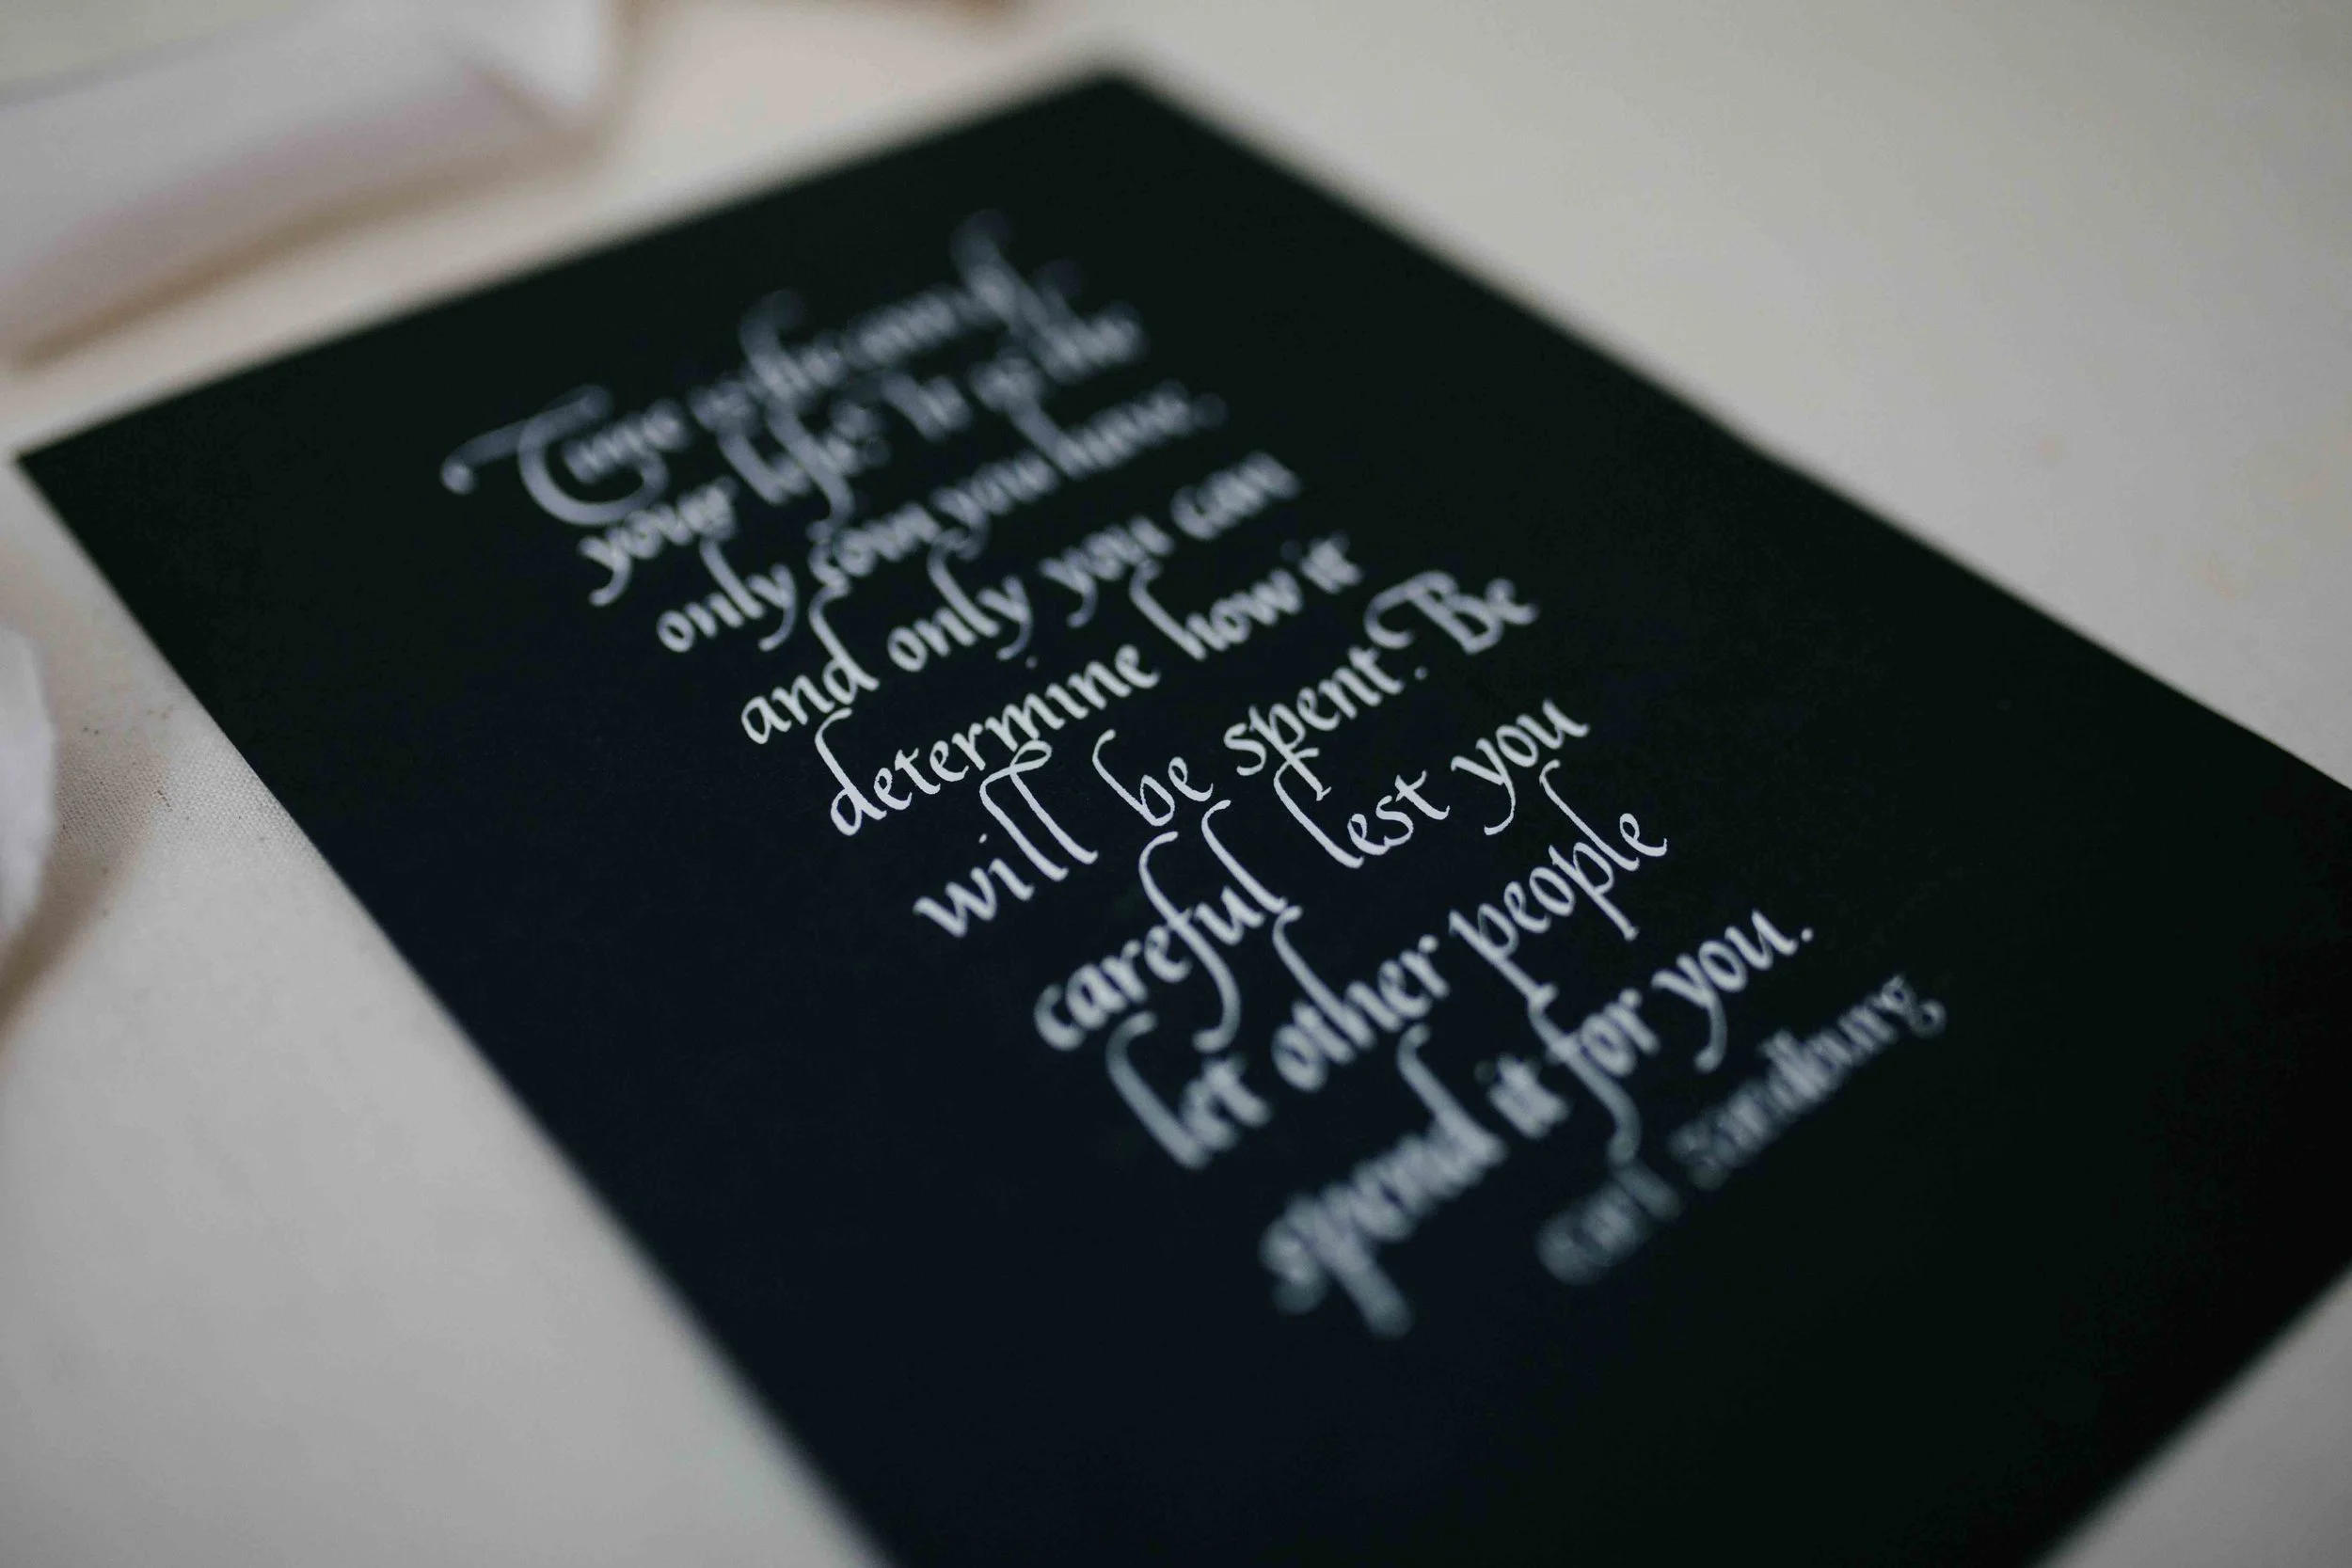 Time is the coin of
your life. It is the
only coin you have,
and only you can
determine how it
will be spent. Be
careful lest you
let other people
spend it for you.
Carl Sandburg